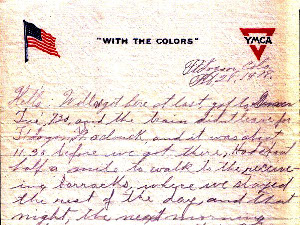 "WITH THE COLORS"
YMCA
Ft Logan, Colo.
28, 1918.
Hello: Well got here at last got to Denver
Tue, 7.20, and the train didnt leave for
Ft Logan and it was about
11.30 before we got there, Had about
half a mile to walk to the receive-
ing barracks, where we stayed
the rest of the day and that
night, the next morning